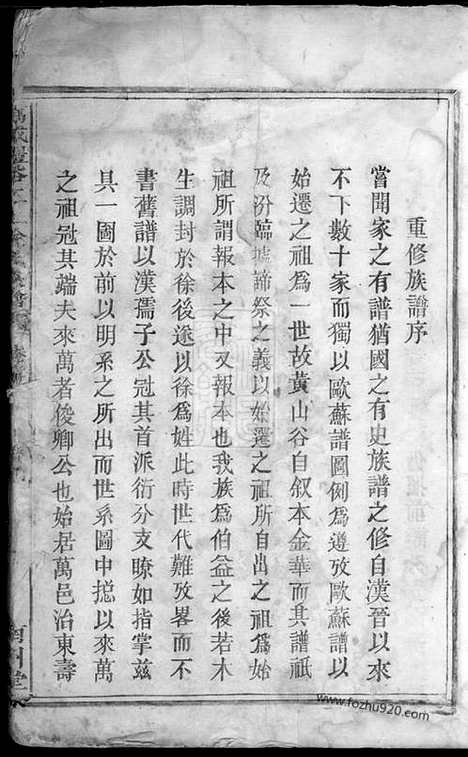 重修族譜序
嘗聞家之有譜猶國之有史族譜之修自漢晉以來
不下數十家而獨以歐蘇譜圖例爲遵攷歐蘇譜以
始遷之祖爲一世故黃山谷自叙本金華而其譜祇
及汾臨墟諦祭之義以始遷之祖所自出之祖爲始
祖所謂報本之中又報本也我族爲伯益之後若木
生調封於徐後遂以徐爲姓此時世代難攷畧而不
書舊譜以漢孺子公冠其首派衍分支瞭如指掌兹
具一圖於前以明系之所出而世系圖中摠以來萬
之祖冠其端夫來萬者俊卿公也始居萬邑治東壽
南州堂
www.fozhu920.com